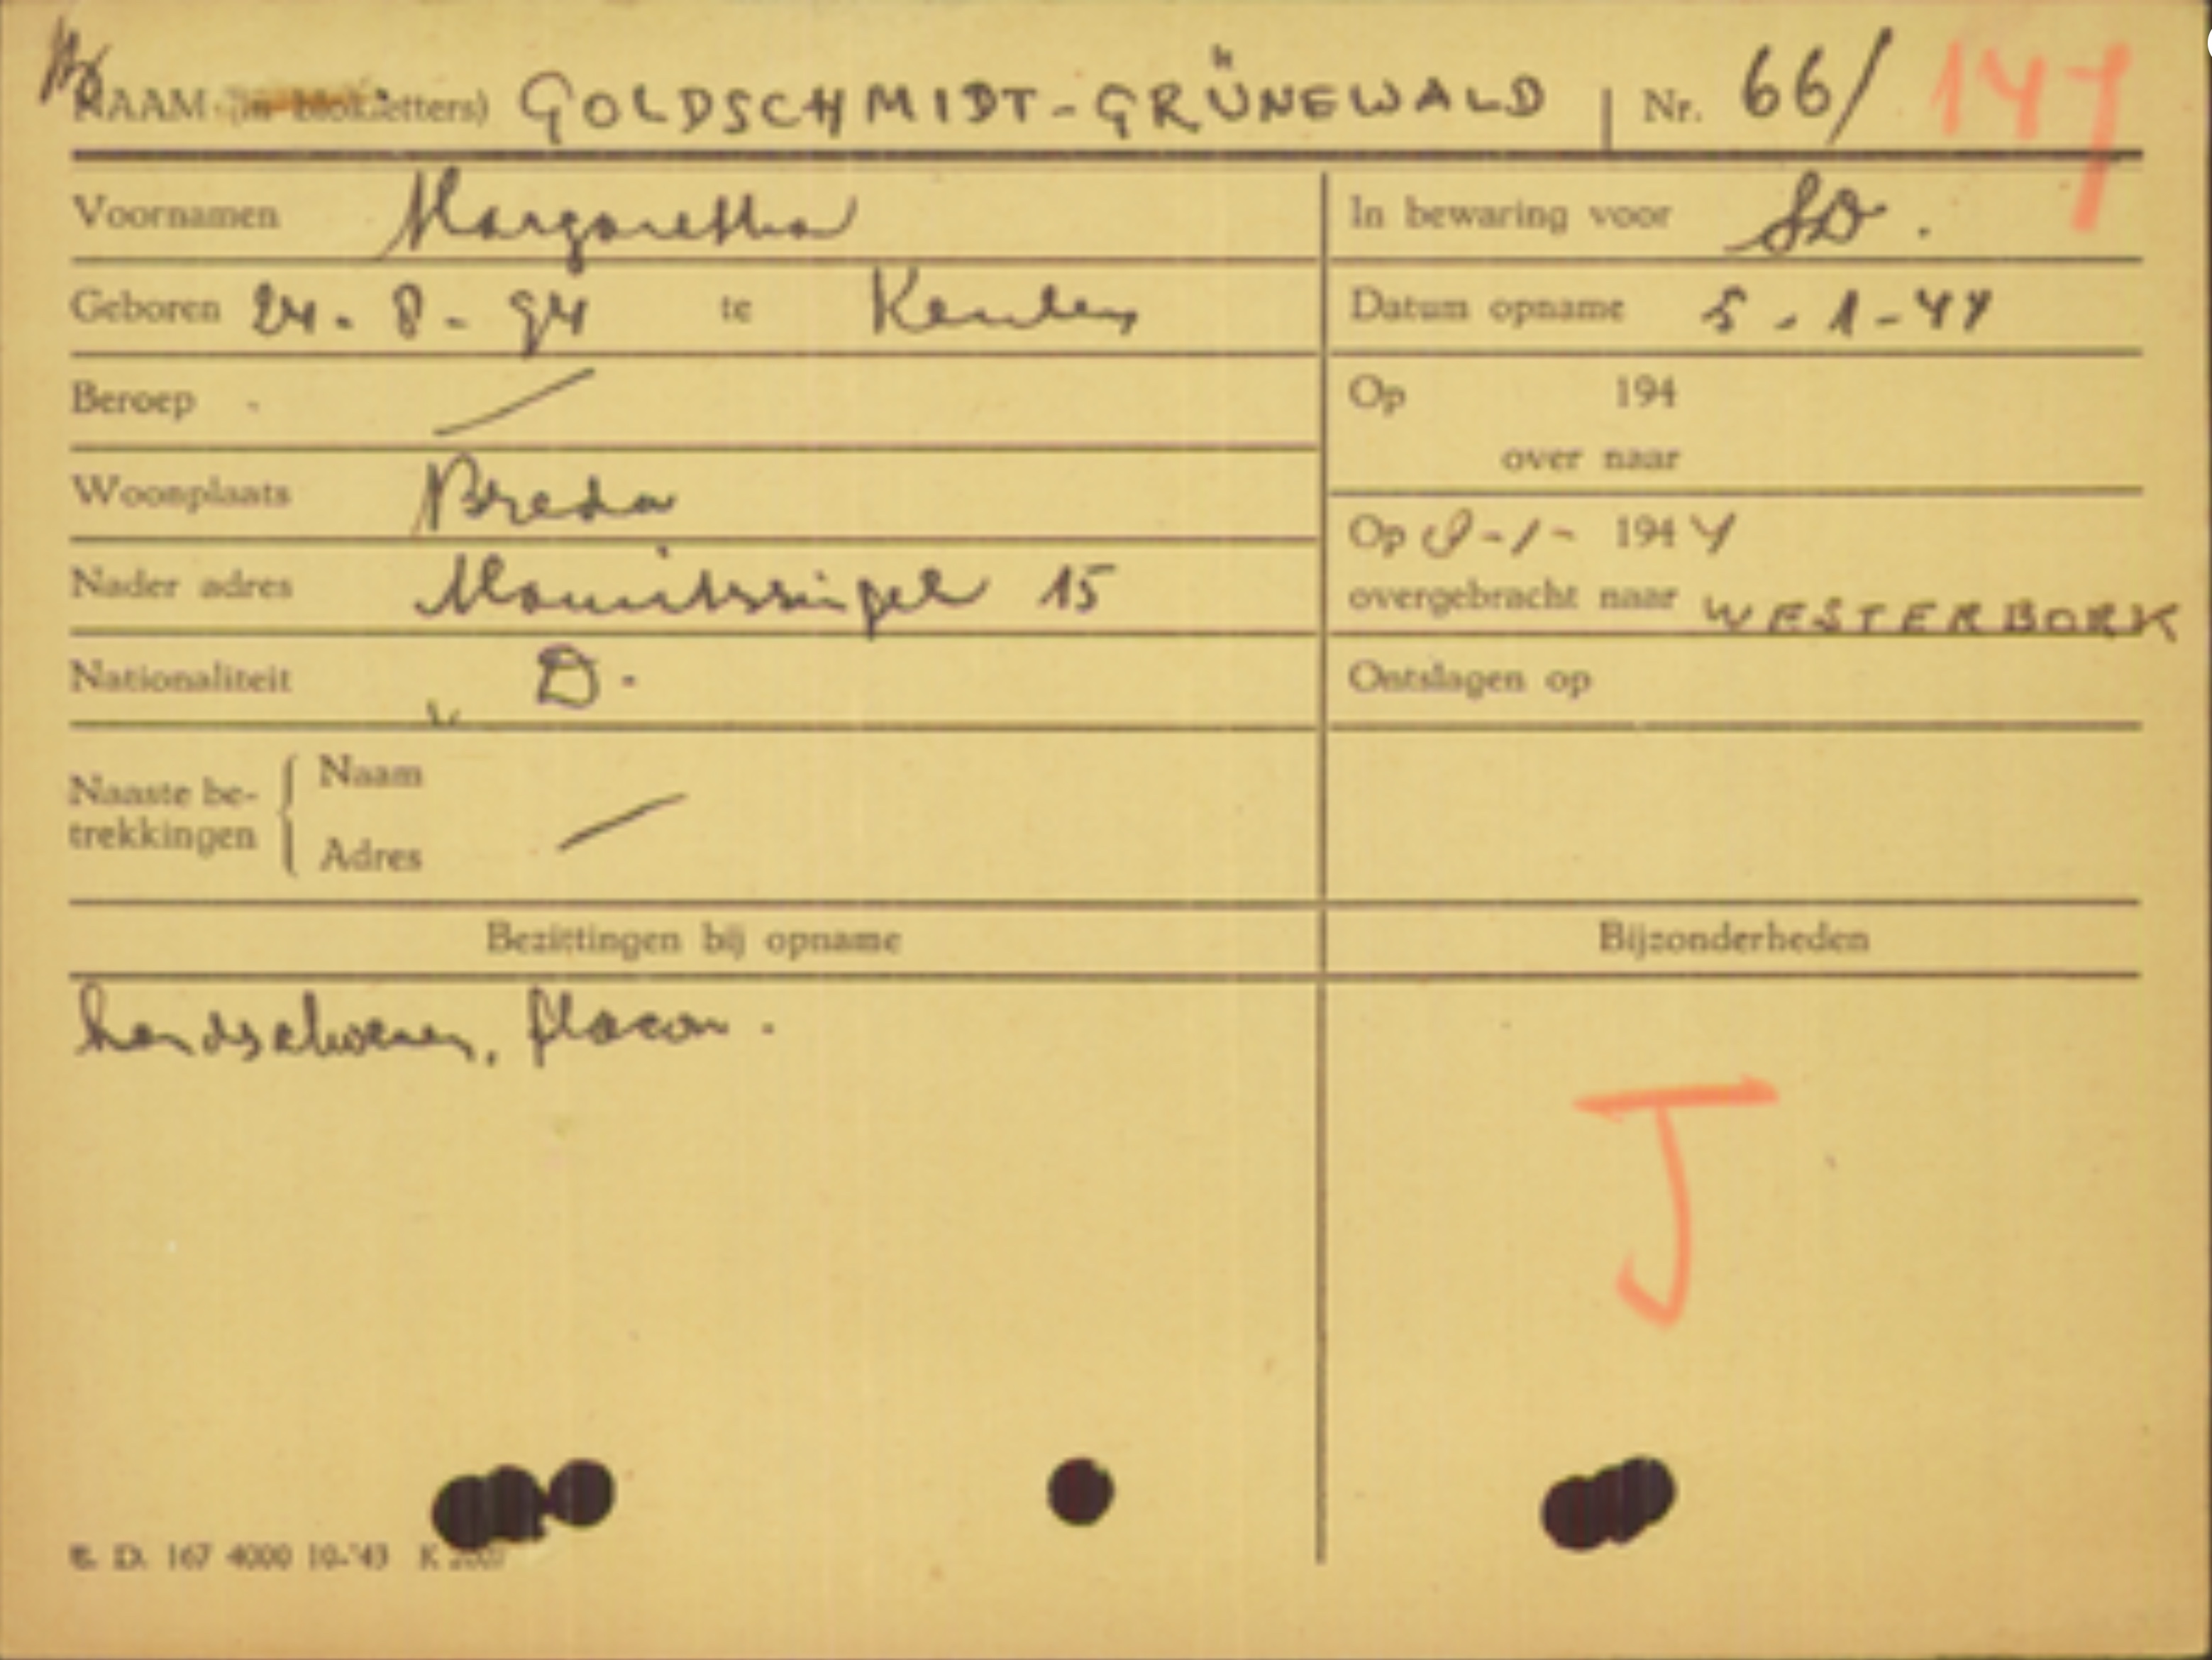 NAAM (in blokletters) GOLDSCHMIDT-GRÜNEWALD Nr. 66/ 147
Voornamen Margaretha In bewaring voor SD.
Geboren 24-8-94 te Keulen Datum opname 5-1-44
Beroep Op 194
over naar
Woonplaats Breda
Op 8-1-1944
Nader adres Mauritssingel 15 overgebracht naar WESTERBORK
Nationaliteit D. Ontslagen op
Naaste be-trekkingen Naam
Adres
Bezittingen bij opname Bijzonderheden
handschoenen, flacon.
J
D. 167 4000 10-'43 K